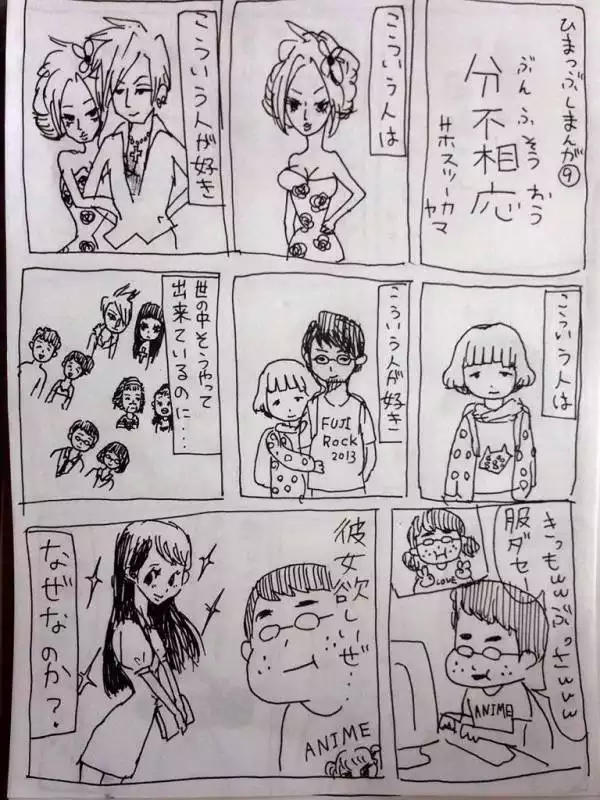 ひまつぶしまんが⑨
ぶんふそうおう
分不相応
サホスツーカ
ヤマ
こういう人は
こういう人が好き
こういう人は
こういう人が好き
FUJI
Rock
2013
世の中そうやって
出来ているのに…
きっもwwぶっさwww
服ダセー
LOVE
ANIME
彼女欲しいぜ…
ANIME
なぜなのか?